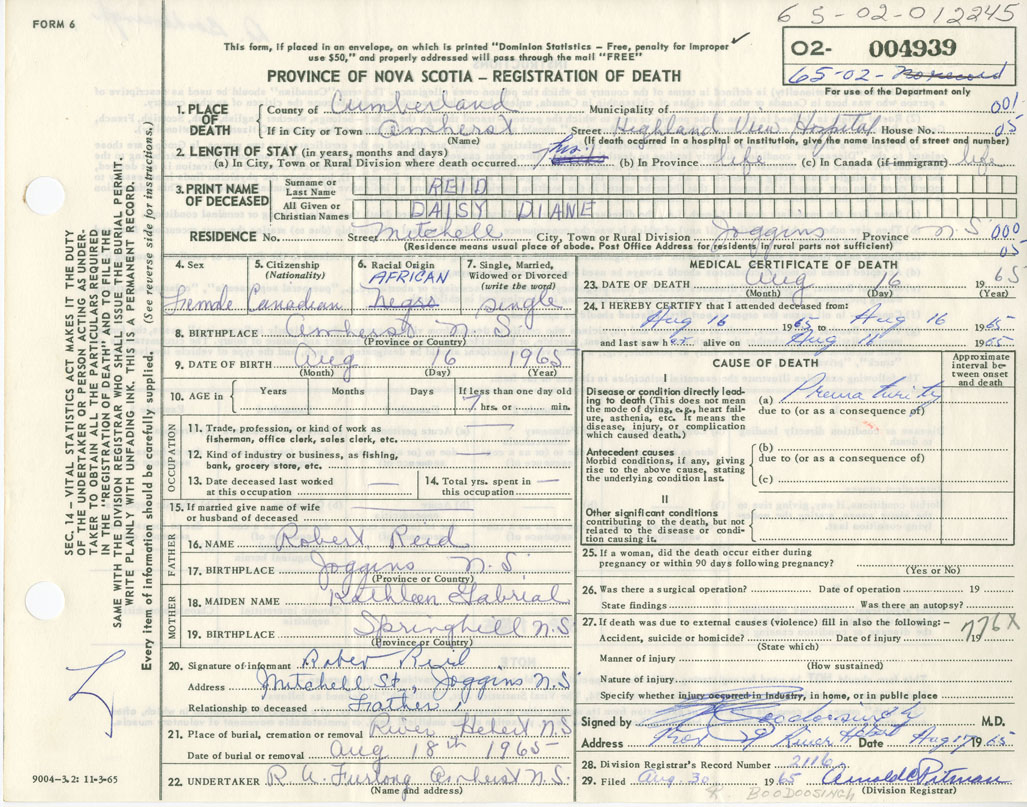 65-02-012245
FORM 6
This form, if placed in an envelope, on which is printed "Dominion Statistics — Free, penalty for improper
use $50," and properly addressed will pass through the mail "FREE"
O2- 004939
65-02- No record
PROVINCE OF NOVA SCOTIA — REGISTRATION OF DEATH
For use of the Department only
1. PLACE OF DEATH
County of Cumberland Municipality of 001
If in City or Town Amherst Street Highland View Hospital House No. 05
(Name) (If death occurred in a hospital or institution, give the name instead of street and number)
2. LENGTH OF STAY (in years, months and days)
(a) In City, Town or Rural Division where death occurred 7 hrs. (b) In Province life (c) In Canada (if immigrant) life
3. PRINT NAME OF DECEASED
Surname or Last Name REID
All Given or Christian Names DAISY DIANE
RESIDENCE No. Street Mitchell City, Town or Rural Division Joggins Province N S 000
(Residence means usual place of abode. Post Office Address for residents in rural parts not sufficient) 05
4. Sex Female
5. Citizenship (Nationality) Canadian
6. Racial Origin AFRICAN Negro
7. Single, Married, Widowed or Divorced (write the word) single
8. BIRTHPLACE Amherst N. S.
(Province or Country)
9. DATE OF BIRTH Aug 16 1965
(Month) (Day) (Year)
10. AGE in Years Months Days If less than one day old
7 hrs. or min.
OCCUPATION
11. Trade, profession, or kind of work as
fisherman, office clerk, sales clerk, etc. —
12. Kind of industry or business, as fishing,
bank, grocery store, etc. —
13. Date deceased last worked
at this occupation —
14. Total yrs. spent in
this occupation —
15. If married give name of wife
or husband of deceased —
FATHER
16. NAME Robert Reid
17. BIRTHPLACE Joggins N. S.
(Province or Country)
MOTHER
18. MAIDEN NAME Kathleen Gabrial
19. BIRTHPLACE Springhill N.S
(Province or Country)
20. Signature of informant Rober Reid
Address Mitchell St., Joggins N S
Relationship to deceased Father
21. Place of burial, cremation or removal River Hebert N S
Date of burial or removal Aug 18th 1965
22. UNDERTAKER R. A. Furlong Amherst N.S.
(Name and address)
MEDICAL CERTIFICATE OF DEATH
23. DATE OF DEATH Aug 16 19 65
(Month) (Day) (Year)
24. I HEREBY CERTIFY that I attended deceased from:
Aug 16 1965 to Aug 16 1965
and last saw her alive on Aug 16 1965
CAUSE OF DEATH
Approximate interval between onset and death
I
Disease or condition directly leading to death (This does not mean
the mode of dying, e.g., heart failure, asthenia, etc. It means the
disease, injury, or complication
which caused death.)
(a) Prematurity
due to (or as a consequence of)
Antecedent causes
Morbid conditions, if any, giving
rise to the above cause, stating
the underlying condition last.
(b)
due to (or as a consequence of)
(c)
II
Other significant conditions
contributing to the death, but not
related to the disease or condition
causing it.
25. If a woman, did the death occur either during
pregnancy or within 90 days following pregnancy?
(Yes or No)
26. Was there a surgical operation? Date of operation 19
State findings Was there an autopsy?
27. If death was due to external causes (violence) fill in also the following:— 776X
Accident, suicide or homicide? Date of injury 19
(State which)
Manner of injury
(How sustained)
Nature of injury
Specify whether injury occurred in industry, in home, or in public place
Signed by Boodoosingh M.D.
Address Box 29 River Hebert Date Aug 17 1965
28. Division Registrar's Record Number 2116
29. Filed Aug. 30 1965 Arnold C Pitman
(Division Registrar)
BOODOOSINGH
SEC. 14 — VITAL STATISTICS ACT MAKES IT THE DUTY
OF THE UNDERTAKER OR PERSON ACTING AS UNDERTAKER TO OBTAIN ALL THE PARTICULARS REQUIRED
IN THE "REGISTRATION OF DEATH" AND TO FILE THE
SAME WITH THE DIVISION REGISTRAR WHO SHALL ISSUE THE BURIAL PERMIT.
WRITE PLAINLY WITH UNFADING INK. THIS IS A PERMANENT RECORD.
Every item of information should be carefully supplied. (See reverse side for instructions.)
9004-3.2: 11-3-65